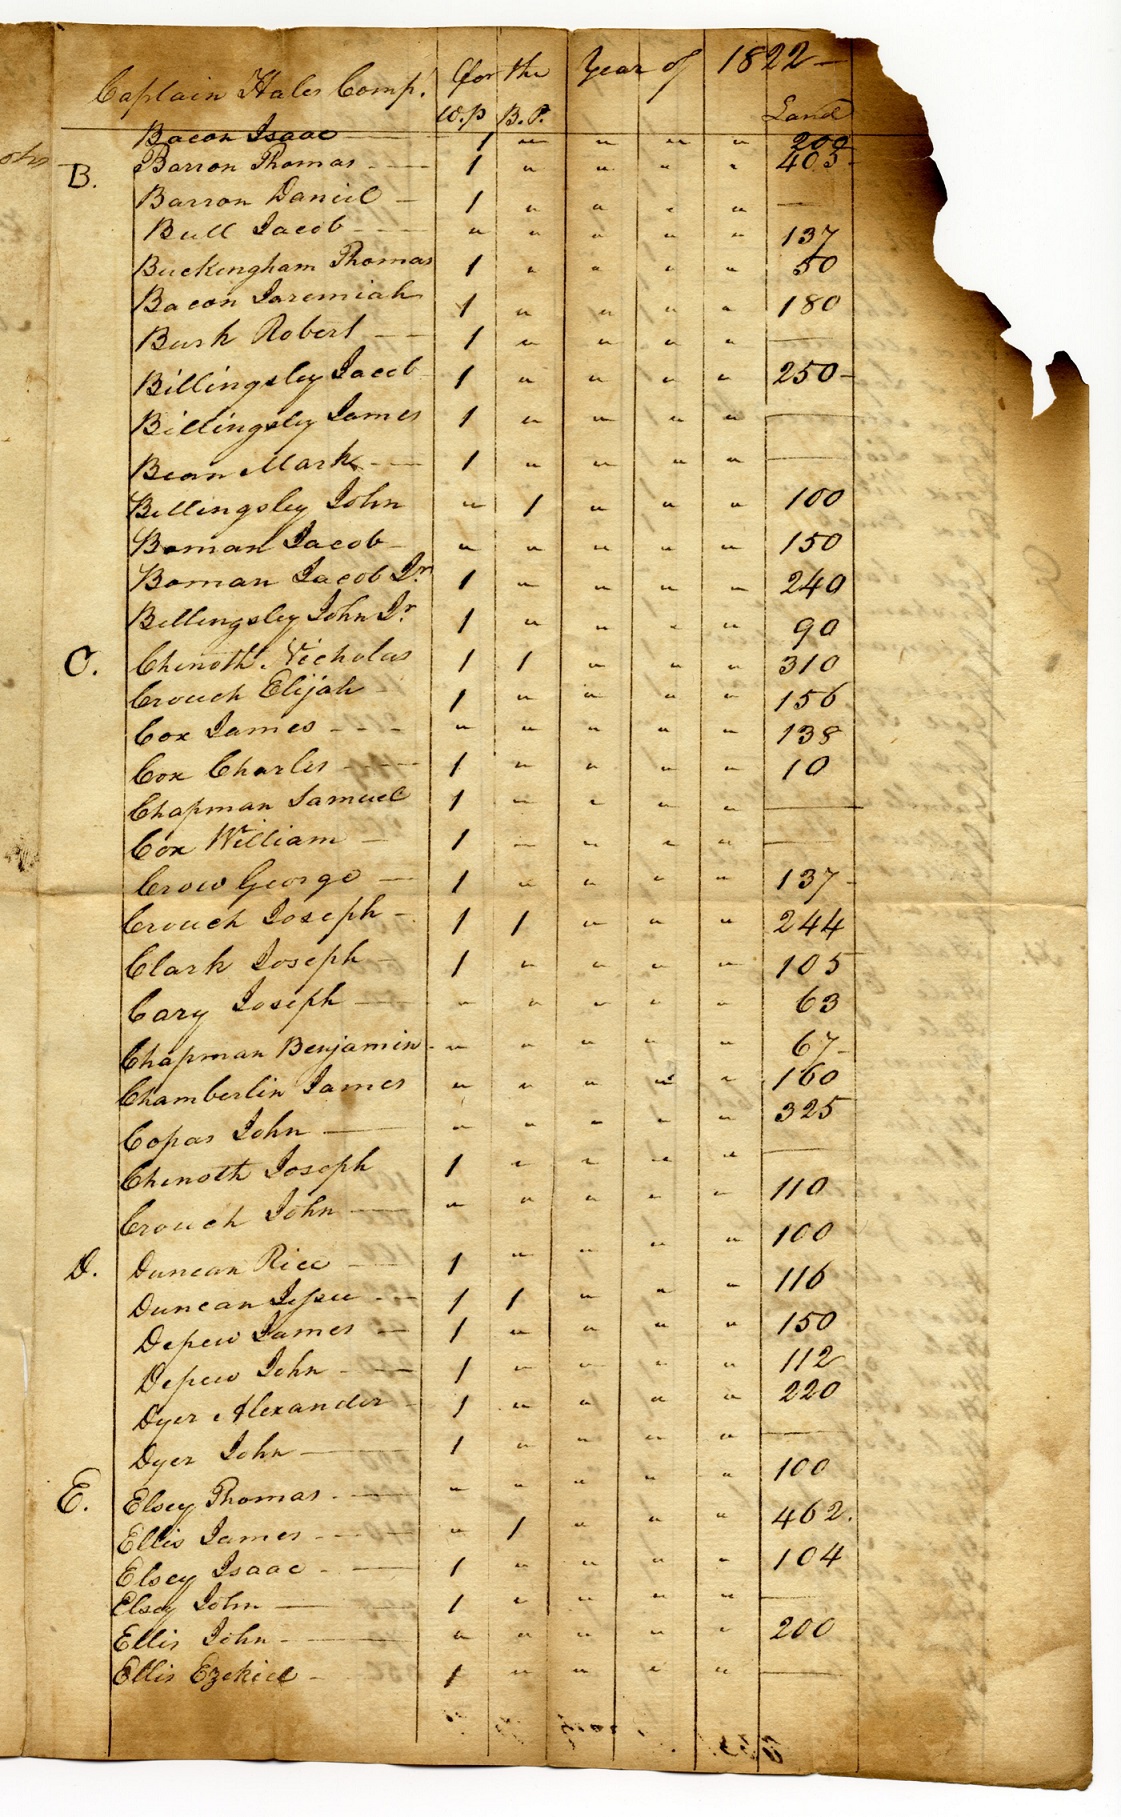 Captain Hales Comp. for the Year of 1822 —
W.P B.P. Land
Bacon Isaac 1 " " " " 200
B. Barron Thomas 1 " " " " 403
Barron Daniel 1 " " " " —
Bull Jacob " " " " " 137
Buckingham Thomas 1 " " " " 50
Bacon Jaremiah 1 " " " " 180
Bush Robert 1 " " " " —
Billingsley Jacob 1 " " " " 250
Billingsley James 1 " " " " —
Bean Mark 1 " " " " —
Billingsley John " 1 " " " 100
Boman Jacob " " " " " 150
Boman Jacob Jr 1 " " " " 240
Billingsley John Jr 1 " " " " 90
C. Chenoth Nicholas 1 1 " " " 310
Crouch Elijah 1 " " " " 156
Cox James " " " " " 138
Cox Charles 1 " " " " 10
Chapman Samuel 1 " " " " —
Cox William 1 " " " " —
Crow George 1 " " " " 137
Crouch Joseph 1 1 " " " 244
Clark Joseph 1 " " " " 105
Cary Joseph " " " " " 63
Chapman Benjamin " " " " " 67
Chamberlin James " " " " " 160
Copas John " " " " " 325
Chenoth Joseph 1 " " " " —
Crouch John " " " " " 110
D. Duncan Rice 1 " " " " 100
Duncan Jesse 1 1 " " " 116
Depew James 1 " " " " 150
Depew John 1 " " " " 112
Dyer Alexander 1 " " " " 220
Dyer John 1 " " " " —
E. Elsey Thomas " " " " " 100
Ellis James " 1 " " " 462.
Elsey Isaac 1 " " " " 104
Elsey John 1 " " " " —
Ellis John " " " " " 200
Ellis Ezekiel 1 " " " " —